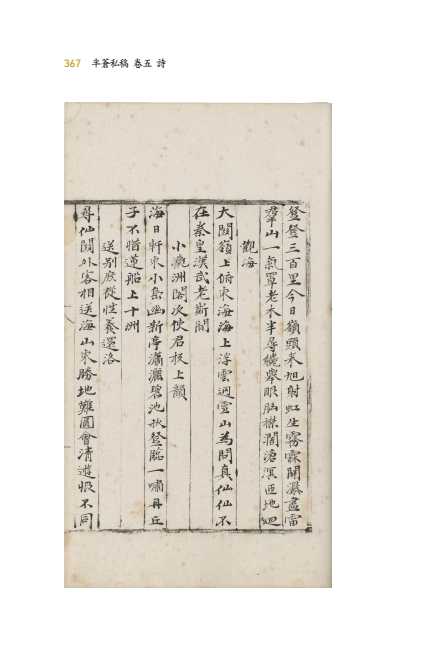 367 半蒼私稿 卷五 詩
登登三百里今日嶺頭來旭射虹生霧霖開瀑盡雷
羣山一氣罩老木半尋纔擧眼胸襟濶滄溟匝地廻
觀海
大關嶺上俯東海海上浮雲過雪山為問真仙仙不
在秦皇漢武老斯間
小瀛洲閣次使君板上韻
海日軒東小島幽新亭瀟灑碧池秋登臨一嘯丹丘
子不惜蓮船上十洲
送別庶從性養還洛
尋仙關外客相送海山東勝地難圓會清遊恨不同